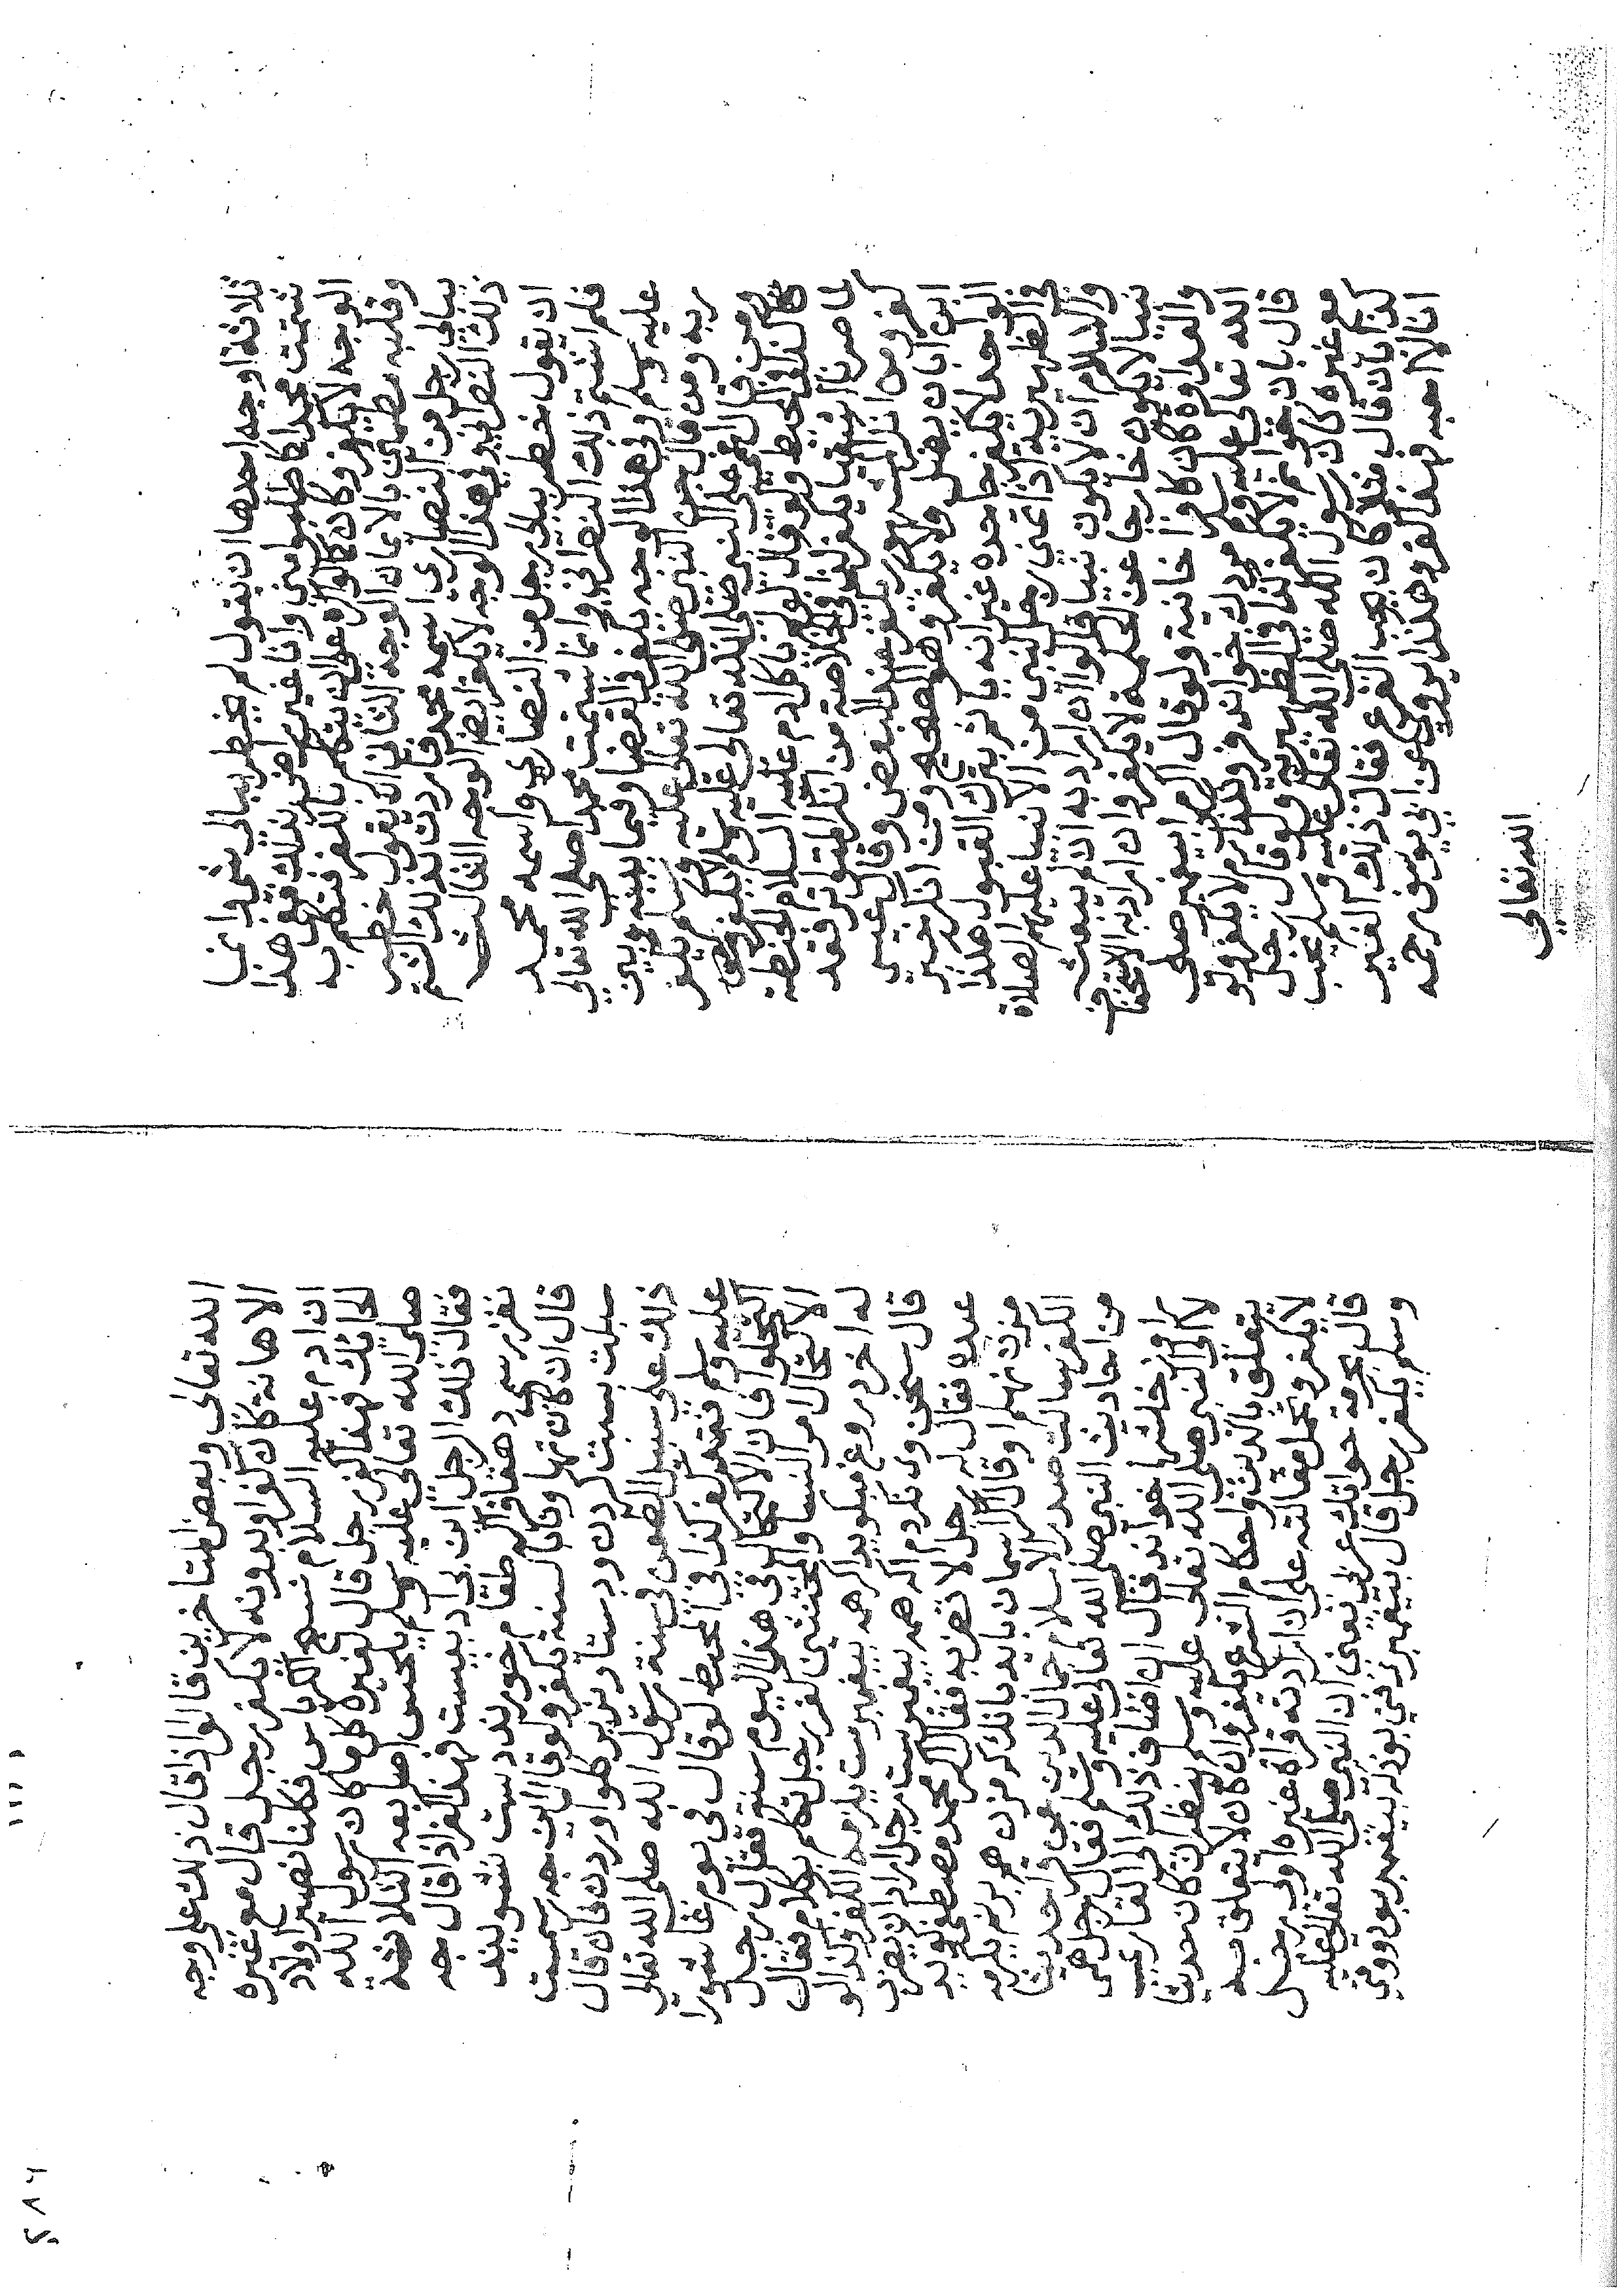 ثلاثة اوجه احدها ان يقول لم يخطر ببالي شي وانما
شتمت محمدا كما طلبوا مني وانا غير راض بذلك ففي هذا
الوجه لا يكفر وكان كما لو اكره على ان يتكلم بالكفر فتكلم به
وقلبه مطمئن بالايمان الوجه الثاني ان يقول خطر
ببالي رجل من النصارى اسمه محمد فاردت بذلك الشتم
ذلك النصراني وفي هذا الوجه لا يكفر ايضا الوجه الثالث
ان يقول خطر ببالي رجل من النصارى واسمه محمد
فلم اشتم ذلك النصراني وانما شتمت محمدا صلى الله تعالى
عليه وسلم وفي هذا الوجه يكفر في القضا وفيما بينه وبين
ربه ومن قال جن النبي صلى الله تعالى عليه وسلم يكفر
ومن قال اغمي على النبي صلى الله تعالى عليه وسلم لا يكفر
كذا في المحيط ولو قال لو لم ياكل ادم عليه السلام الحنطة
ما صرنا اشقيا يكفر كذا في الخلاصة من انكر المتواتر فقد
كفر ومن انكر المشهور يكفر عند البعض وقال عيسى
ابن ابان يضلل ولا يكفر وهو الصحيح ومن انكر خبر
الواحد لا يكفر جاحده غير انه ياثم بترك القبول هكذا
في الظهيرية اذا تمنى رجل لنبي من الانبيا عليهم الصلاة
والسلام ان لا يكون نبيا قالوا ان اراد به انه لم يبعث
نبيا لا يكون خارجا عن الحكمة لا يكفر وان اراد به الاستخفاف
والعداوة كان كافرا خانية ولو قال اكر پيغمبر صلى
الله تعالى عليه وسلم مردك خواند فروندارم لا يكفر ولو
قال باتو بخوانم لا يكفر كذا في الظهيرية ولو قال رجل
مع غيره كان رسول الله صلى الله تعالى عليه وسلم يحب
كذا بان قال مثلا كان يحب القرع فقال ذلك الغير
انا لا احبه فهذا كفر وهكذا يروى عن ابي يوسف رحمه
الله تعالى
الله تعالى وبعض المتاخرين قالوا اذا قال ذلك على وجه
الاهانة كان كفرا وبدونه لا يكفر رجل قال مع غيره
ان ادم عليه السلام نسج الكرباس فكلنا نصير اولاد
الحائك فهذا كفر رجل قال لغيره كل ما كان رسول الله
صلى الله تعالى عليه وسلم يلحس اصابعه الثلاثة
فقال ذلك الرجل اين بي ادبيست فهذا كفر اذا قال جه
نغز رسمي دهقانرا كه طعام خورند ودست نشويند
قال ان كان تهاونا بالسنة يكفر ولو قال اين جه رسمست
سبلت بست كردن ودستار بزير كلو اوردن فان قال
ذلك على سبيل الطعن في سنة رسول الله صلى الله تعالى
عليه وسلم فقد كفر كذا في المحيط لو قال في يوم عاشورا
اكتحلوا فان الاكتحال في هذا اليوم سنة فقال رجل
الاكتحال امر النسا والمخنثين كفر رجل تكلم بكلام فقال
له اخر دروغ ميكويد اكر همه پيغمبرست يلزمه الكفر وكذا لو
قال سخن وى نكردم اكر همه پيغمبرست رجل اراد ان يضرب
عبده فقال له رجل لا تضربه فقال اكر محمد مصطفى كويد
مزن نهلم او قال اكر اسمان بانك كند كه مزن هم بزنم يلزمه
الكفر سالت صدر الاسلام جمال الدين عمن قرا حديثا
من احاديث النبي صلى الله تعالى عليه وسلم فقال رجل همه
روز خلشها خواند قال ان اضاف ذلك الى القارئ
لا الى النبي صلى الله تعالى عليه وسلم ينظر ان كان حديثا
يتعلق بالدين واحكام الشرع يكفر وان كان لا يتعلق به
لا يكفر ويحمل مقالته على ان ارادته قراة غيره اولى رجل
قال بحرمة جوانك عربي يعني ان النبي صلى الله تعالى عليه
وسلم يكفر رجل قال پيغمبر زني بود كه پيغمبر بود وفي
٢٨٦